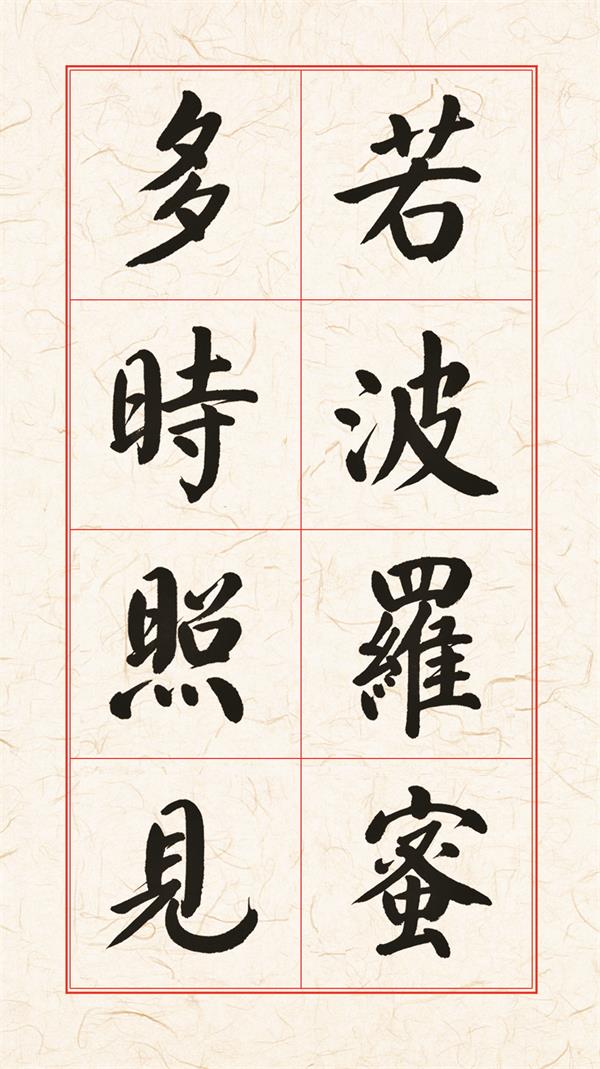 若波羅蜜
多時照見